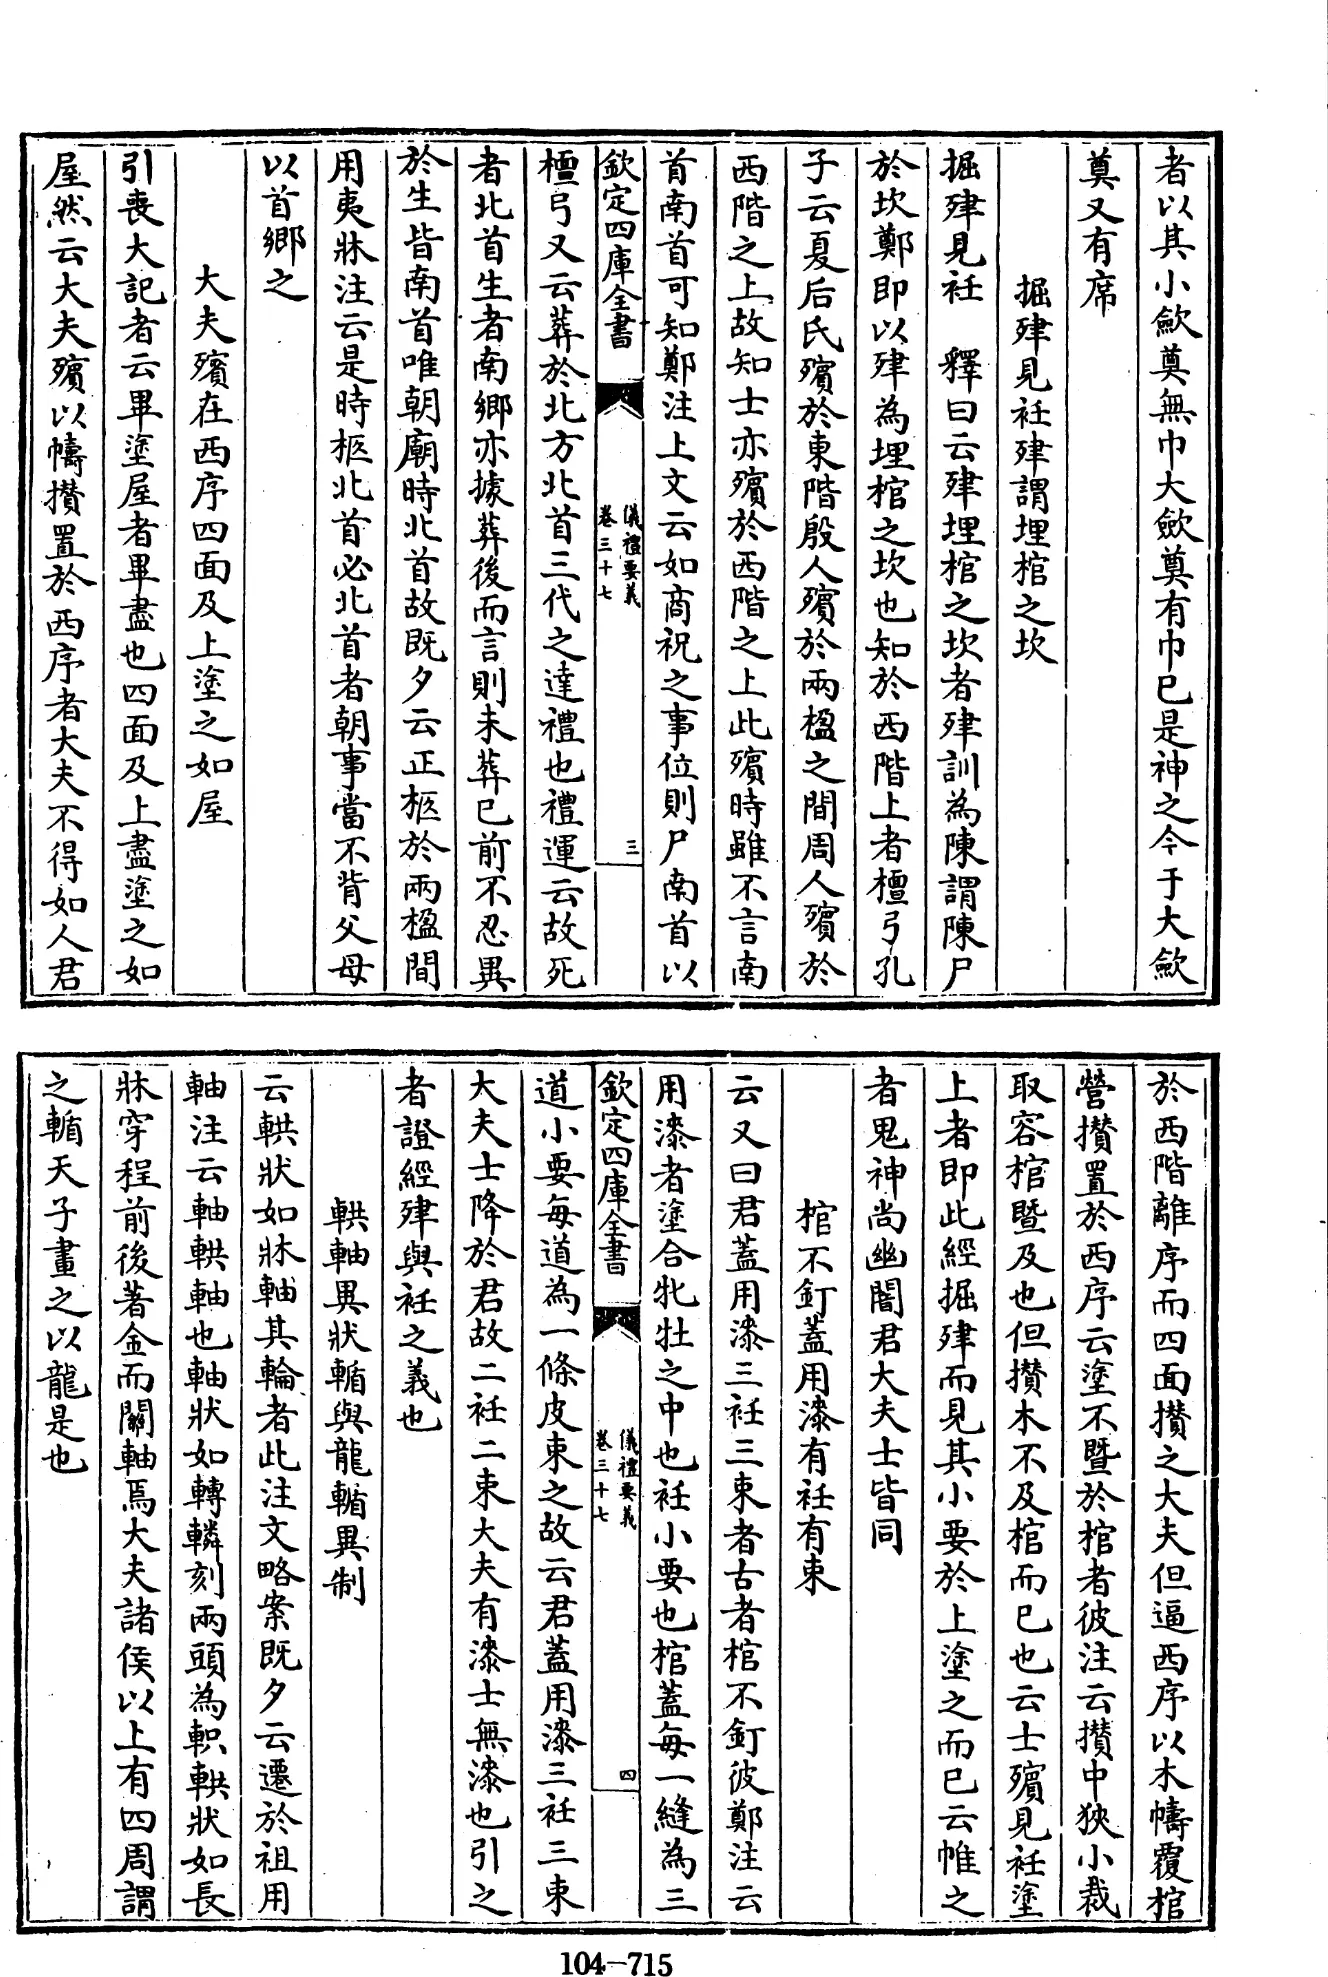 者以其小斂奠無巾大斂奠有巾已是神之今于大斂
奠又有席
掘肂見衽肂謂埋棺之坎
掘肂見衽　釋曰云肂埋棺之坎者肂訓為陳謂陳尸
於坎鄭即以肂為埋棺之坎也知於西階上者檀弓孔
子云夏后氏殯於東階殷人殯於兩楹之間周人殯於
西階之上故知士亦殯於西階之上此殯時雖不言南
首南首可知鄭注上文云如商祝之事位則尸南首以
欽定四庫全書
儀禮要義
卷三十七
三
檀弓又云葬於北方北首三代之達禮也禮運云故死
者北首生者南鄉亦據葬後而言則未葬已前不忍異
於生皆南首唯朝廟時北首故既夕云正柩於兩楹間
用夷牀注云是時柩北首必北首者朝事當不背父母
以首鄉之
大夫殯在西序四面及上塗之如屋
引喪大記者云畢塗屋者畢盡也四面及上盡塗之如
屋然云大夫殯以幬攢置於西序者大夫不得如人君
於西階離序而四面攢之大夫但逼西序以木幬覆棺
營攢置於西序云塗不暨於棺者彼注云攢中狹小裁
取容棺暨及也但攢木不及棺而已也云士殯見衽塗
上者即此經掘肂而見其小要於上塗之而已云帷之
者鬼神尚幽闇君大夫士皆同
棺不釘蓋用漆有衽有束
云又曰君蓋用漆三衽三束者古者棺不釘彼鄭注云
用漆者塗合牝牡之中也衽小要也棺蓋每一縫為三
欽定四庫全書
儀禮要義
卷三十七
四
道小要每道為一條皮束之故云君蓋用漆三衽三束
大夫士降於君故二衽二束大夫有漆士無漆也引之
者證經肂與衽之義也
輁軸異狀輴與龍輴異制
云輁狀如牀軸其輪者此注文略案既夕云遷於祖用
軸注云軸輁軸也軸狀如轉轔刻兩頭為軹輁狀如長
牀穿桯前後著金而關軸焉大夫諸侯以上有四周謂
之輴天子畫之以龍是也
104-715